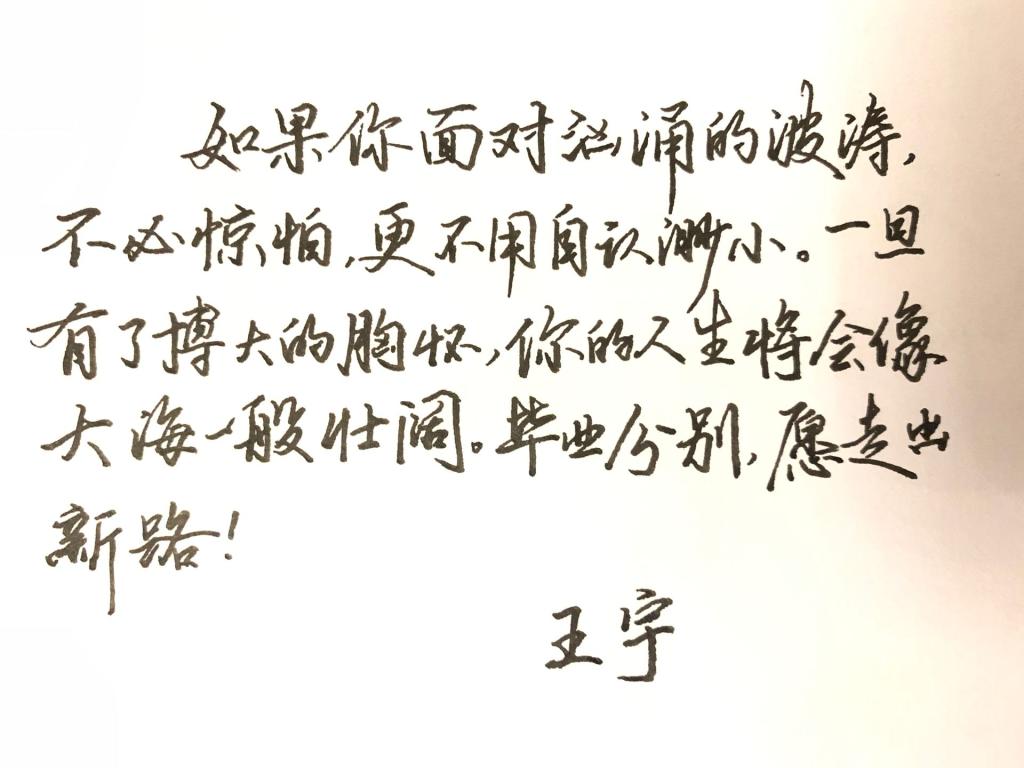 如果你面对汹涌的波涛,
不必惊怕,更不用自认渺小。一旦
有了博大的胸怀,你的人生将会像
大海一般壮阔。毕业分别,愿走出
新路!
王宇